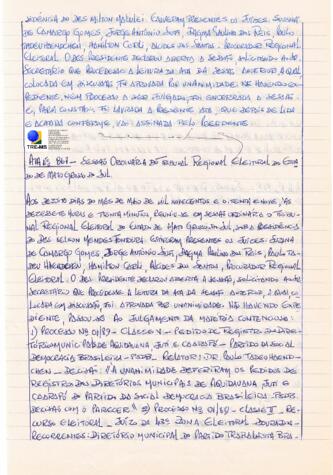 sidência do Des Nelson Mendes. Estiveram presentes os Juízes: Suzana
de Camargo Gomes, Jorge Antonio Siufi, Jagma Paulino dos Reis, Paulo
Tadeu Haendchen, Hamilton Carli, Alcides dos Santos, Procurador Regional
Eleitoral. O Des Presidente declarou aberta a sessão, solicitando ao Sr.
Secretário que procedesse a leitura da ata da sessão anterior, a qual
colocada em discussão, foi aprovada por unanimidade. Não havendo ex-
pediente, nem processo a ser julgado, foi encerrada a sessão.
E, para constar, foi lavrada a presente ata, que depois de lida
e achada conforme, vai assinada pelo Presidente.
TRE-MS
Ata nº 867 - Sessão Ordinária do Tribunal Regional Eleitoral do Esta
do de Mato Grosso do Sul.
Aos dezoito dias do mês de maio de mil novecentos e oitenta e nove, às
dezessete horas e trinta minutos, reuniu-se em sessão ordinária o Tribu-
nal Regional Eleitoral do Estado de Mato Grosso do Sul, sob a presidência
do Des Nelson Mendes Fontoura. Estiveram presentes os Juízes: Suzana
de Camargo Gomes, Jorge Antonio Siufi, Jagma Paulino dos Reis, Paulo Ta-
deu Haendchen, Hamilton Carli, Alcides dos Santos, Procurador Regional
Eleitoral. O Des Presidente declarou aberta a sessão, solicitando ao Sr.
Secretário que procedesse a leitura da ata da sessão anterior, a qual co-
locada em discussão, foi aprovada por unanimidade. Não havendo expe-
diente, passou-se ao julgamento da matéria contenciosa:
1) Processo nº 01/89 - Classe V - Pedido de Registro dos Dire-
tórios Municipais de Aquidauana, Juti e Caarapó - Partido da Social
Democracia Brasileira - PSDB. Relator: Dr. Paulo Tadeu Haend-
chen - Decisão: "À unanimidade deferiram os pedidos de
registro dos Diretórios Municipais de Aquidauana, Juti e
Caarapó do Partido da Social Democracia Brasileira - PSDB.
Decisão com o parecer." 2) Processo nº 01/89 - Classe II - Re-
curso Eleitoral - Juízo da 43ª Zona Eleitoral - Dourados -
Recorrentes: Diretório Municipal do Partido Trabalhista Bra-